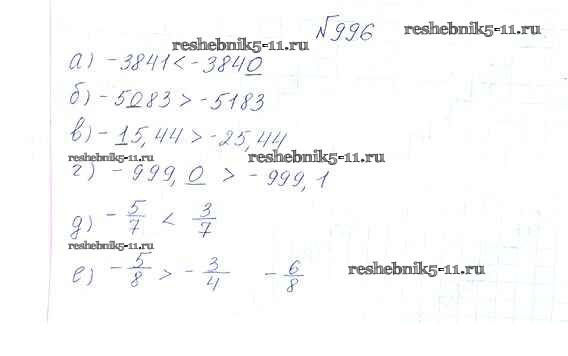 №996
reshebnik5-11.ru
reshebnik5-11.ru
а) -3841 < -3840
б) -5083 > -5183
в) -15,44 > -25,44
reshebnik5-11.ru
reshebnik5-11.ru
г) -999,0 > -999,1
д) -5/7 < 3/7
reshebnik5-11.ru
е) -5/8 > -3/4 -6/8
reshebnik5-11.ru